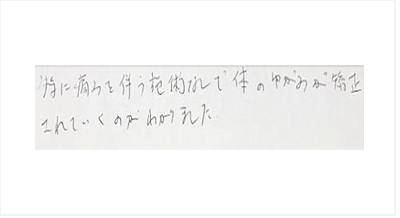 特に痛みを伴う施術なしで体のゆがみが矯正
されていくのがわかりました